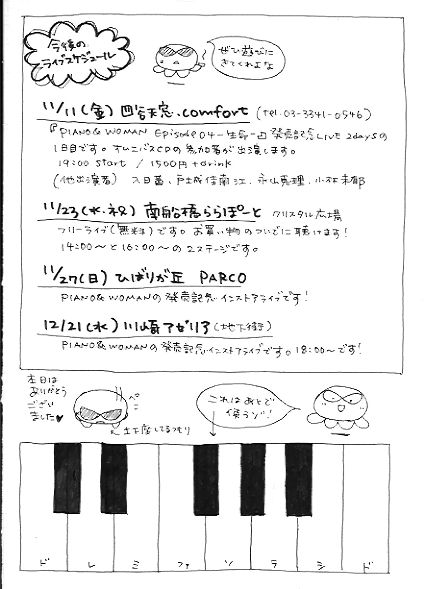 今後の
ライブスケジュール
ぜひ遊びに
きてくれよな
11/11(金) 四谷天窓.comfort (tel.03-3341-0546)
『PIANO&WOMAN Episode04-生命-』発売記念LIVE 2daysの
1日目です。オムニバスCDの参加者が出演します。
19:00 start / 1500円+drink
(他出演者)
11/23(水・祝) 南船橋ららぽーと クリスタル広場
フリーライブ(無料)です。お買い物のついでに聴けます!
14:00〜と16:00〜の2ステージです。
11/27(日) ひばりが丘 PARCO
PIANO&WOMANの発売記念インストアライブです!
12/21(水) 川崎アゼリア(地下街)
PIANO&WOMANの発売記念インストアライブです。18:00〜です!
本日は
ありがとう
ござい
ました♥
ペコ
←土下座してるつもり
これはあとで
使うゾ!
ド レ ミ ファ ソ ラ シ ド